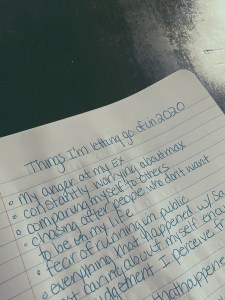 Things I'm letting go of in 2020
• my anger at my Ex
• constantly worrying about max
• comparing myself to others
• chasing after people who don't want
to be in my life
• fear of running in public
• everything that happened w/ sa
caring about myself
judgement I perceive
that happene